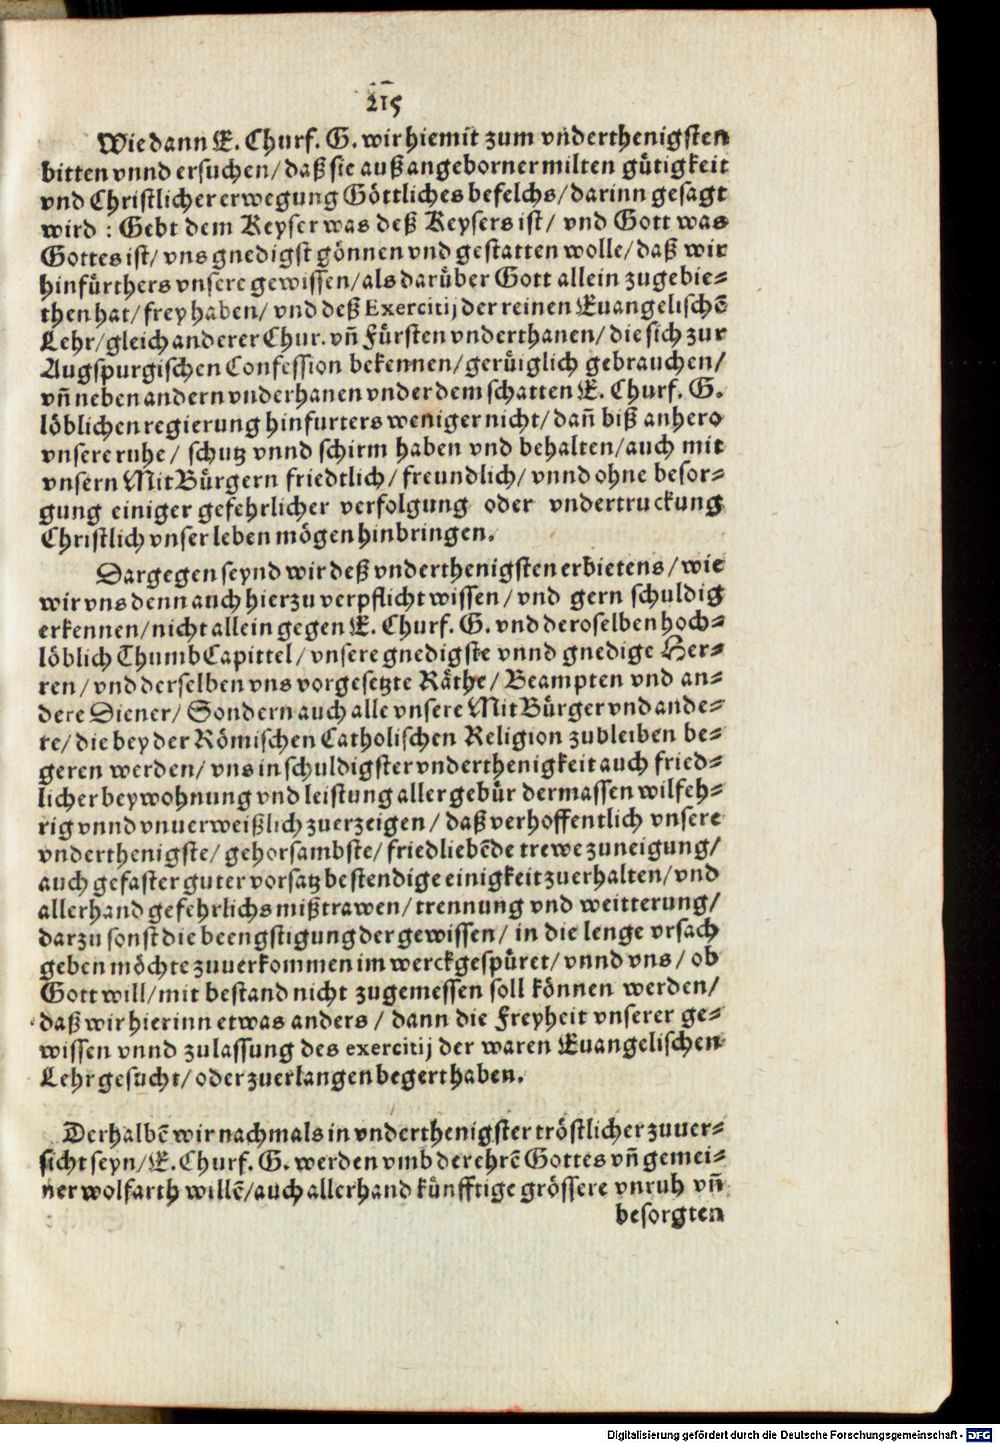 215
Wie dann E. Churf. G. wir hiemit zum vnderthenigsten
bitten vnnd ersuchen/ daß sie auß angeborner milten gütigkeit
vnd Christlicher erwegung Göttliches befelchs/ darinn gesagt
wird : Gebt dem Keyser was deß Keysers ist/ vnd Gott was
Gottes ist/ vns gnedigst gönnen vnd gestatten wolle/ daß wir
hinfürthers vnsere gewissen/ als darüber Gott allein zugebie-
then hat/ frey haben/ vnd deß Exercitij der reinen Euangelischē
Lehr/ gleich anderer Chur. vñ Fürsten vnderthanen/ die sich zur
Augspurgischen Confession bekennen/ gerüiglich gebrauchen/
vñ neben andern vnderhanen vnder dem schatten E. Churf. G.
löblichen regierung hinfurters weniger nicht/ dañ biß anhero
vnsere ruhe/ schutz vnnd schirm haben vnd behalten/ auch mit
vnsern MitBürgern friedtlich/ freundlich/ vnnd ohne besor-
gung einiger gefehrlicher verfolgung oder vndertruckung
Christlich vnser leben mögen hinbringen.
Dargegen seynd wir deß vnderthenigsten erbietens/ wie
wir vns denn auch hierzu verpflicht wissen/ vnd gern schuldig
erkennen/ nicht allein gegen E. Churf. G. vnd deroselben hoch-
löblich ThumbCapittel/ vnsere gnedigste vnnd gnedige Her-
ren/ vnd derselben vns vorgesetzte Räthe/ Beampten vnd an-
dere Diener/ Sondern auch alle vnsere MitBürger vnd ande-
re/ die bey der Römischen Catholischen Religion zubleiben be-
geren werden/ vns in schuldigster vnderthenigkeit auch fried-
licher beywohnung vnd leistung aller gebür dermassen wilfeh-
rig vnnd vnuerweißlich zuerzeigen/ daß verhoffentlich vnsere
vnderthenigste/ gehorsambste/ friedliebēde trewe zuneigung/
auch gefaster guter vorsatz bestendige einigkeit zuerhalten/ vnd
allerhand gefehrlichs mißtrawen/ trennung vnd weitterung/
darzu sonst die beengstigung der gewissen/ in die lenge vrsach
geben möchte zuuerkommen im werck gespüret/ vnnd vns/ ob
Gott will/ mit bestand nicht zugemessen soll können werden/
daß wir hierinn etwas anders/ dann die Freyheit vnserer ge-
wissen vnnd zulassung des exercitij der waren Euangelischen
Lehr gesucht/ oder zuerlangen begert haben.
Derhalbē wir nachmals in vnderthenigster tröstlicher zuuer-
sicht seyn/ E. Churf. G. werden vmb der ehrē Gottes vñ gemei-
ner wolfarth willē/ auch allerhand künfftige grössere vnruh vñ
besorgten
Digitalisierung gefördert durch die Deutsche Forschungsgemeinschaft - DFG